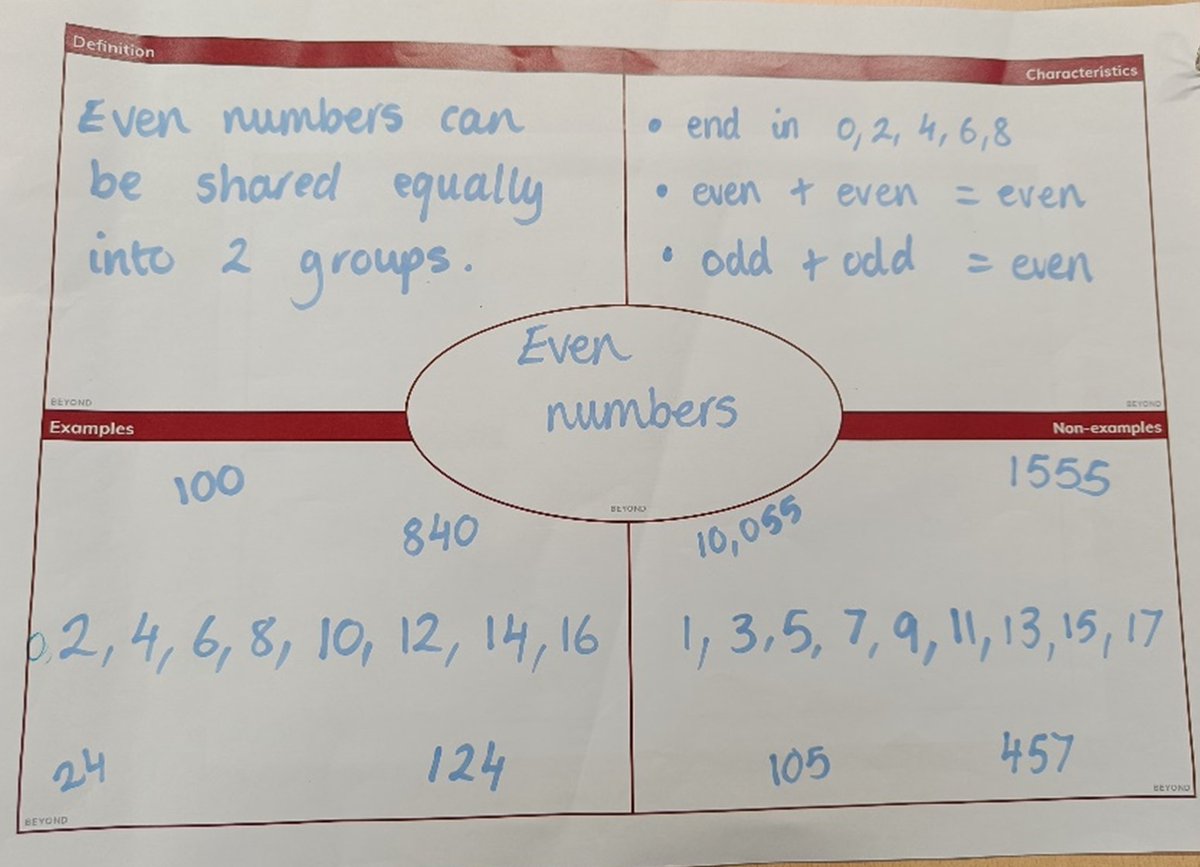 Definition
Even numbers can
be shared equally
into 2 groups.
BEYOND
Characteristics
• end in 0, 2, 4, 6, 8
• even + even = even
• odd + odd = even
BEYOND
Even
numbers
BEYOND
Examples
100
840
0, 2, 4, 6, 8, 10, 12, 14, 16
24 124
BEYOND
Non-examples
1555
10,055
1, 3, 5, 7, 9, 11, 13, 15, 17
105 457
BEYOND